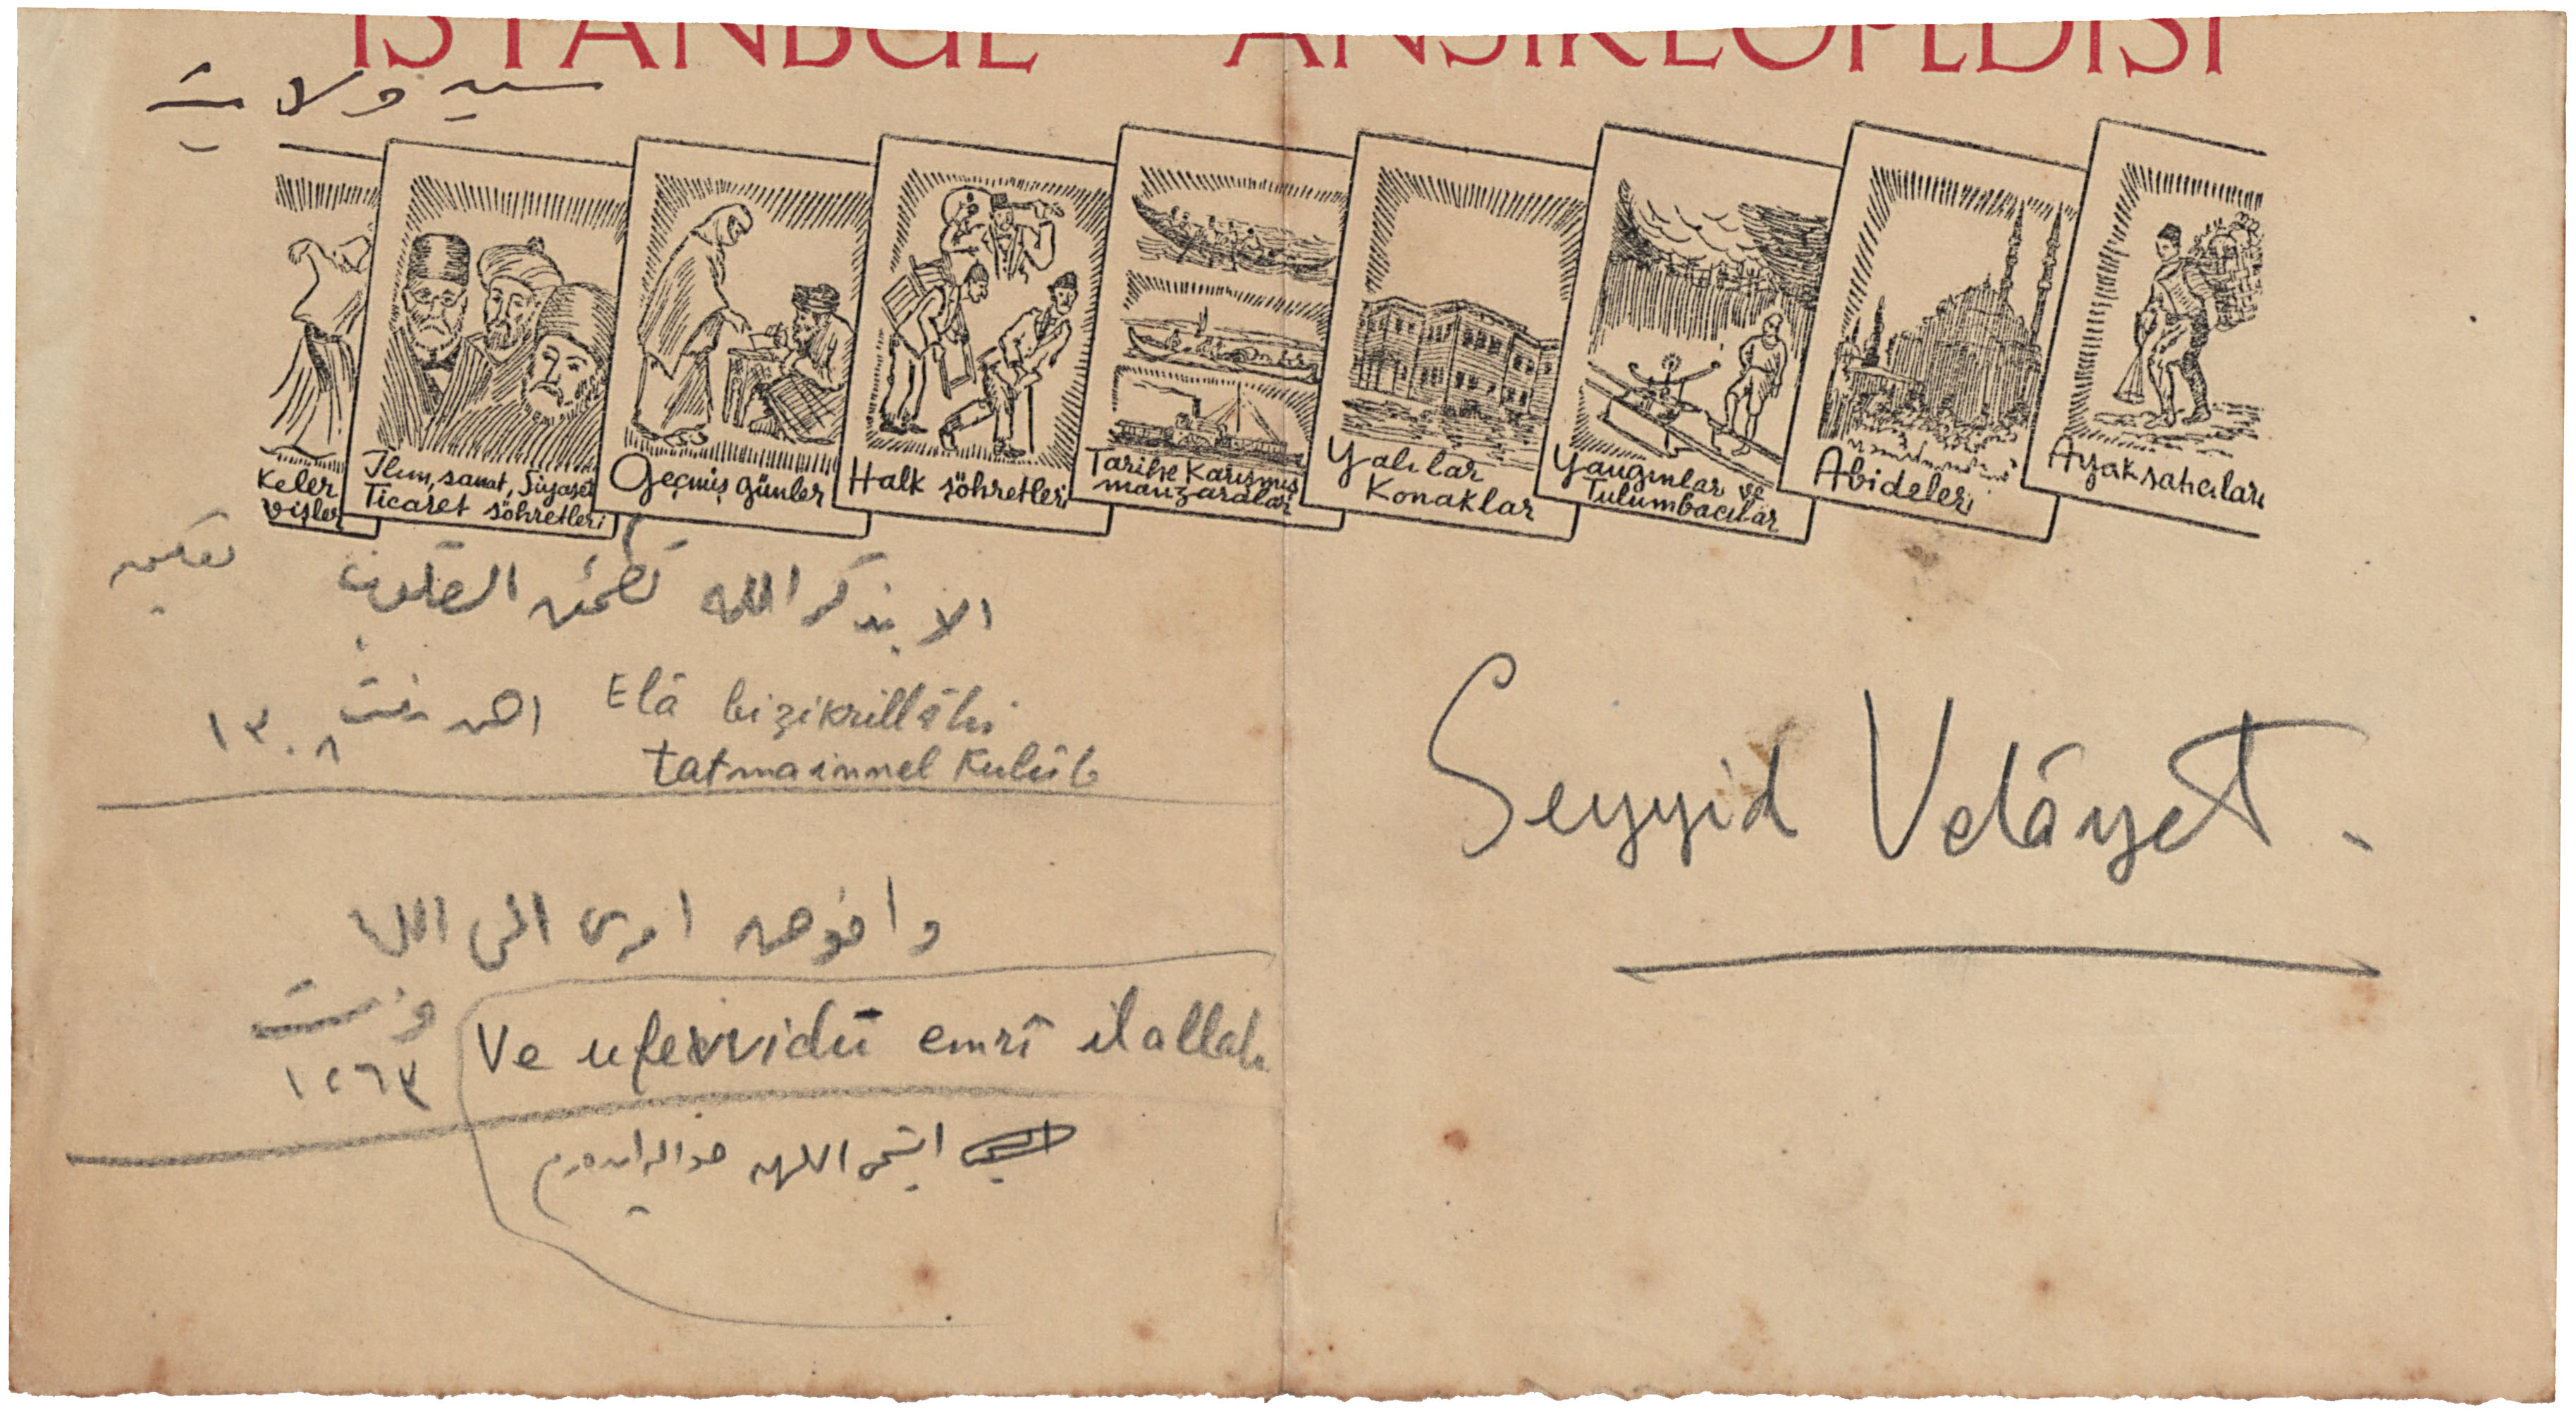 İSTANBUL ANSİKLOPEDİSİ
سيد ولايت
keler
vişler
İlim, sanat, Siyaset
Ticaret şöhretleri
Geçmiş günler
Halk şöhretleri
Tarihe Karışmış
manzaralar
Yalılar
Konaklar
Yangınlar ve
Tulumbacılar
Abideleri
Ayak satıcıları
الا بذكر الله تطمئن القلوب
Elâ bizikrillâhi
tatmainnel Kulûb
١٣٠٨
Seyyid Velâyet.
وافوض امرى الى الله
Ve ufevvidü emrî ilallah
١٢٦٣